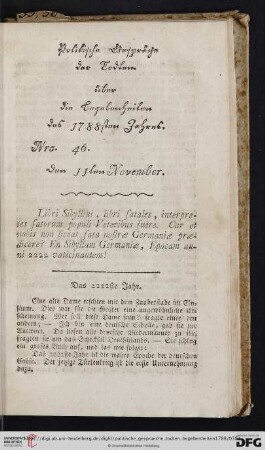 Politische Gespräche
der Todten
über
die Begebenheiten
des 1788sten Jahres.
Nro. 46.
Den 11ten November.
Libri Sibyllini, libri fatales, interpre-
tes fatorum populi Veteribus fuere. Cur et
nobis non liceat fata nostræ Germaniæ præ-
dicere? En Sibyllam Germaniæ, Epocam an-
ni 2222 vaticinantem!
Das 2222ste Jahr.
Eine alte Dame erschien mit dem Zauberstabe im Ely-
sium. Dies war für die Todten eine ungewöhnliche Er-
scheinung. Wer soll diese Dame seyn? fragte einer den
andern; — Ich bin eine deutsche Sibylle, gab sie zur
Antwort. Da liefen alle deutsche Biedermänner zu ihr,
fragten sie um das Schicksal Deutschlands. — Sie schlug
ein grosses Buch auf, und las wie folget:
Das 2222ste Jahr ist die wahre Epoche der deutschen
Grösse. Der jetzige Türkenkrieg ist die erste Unternehmung
dazu.